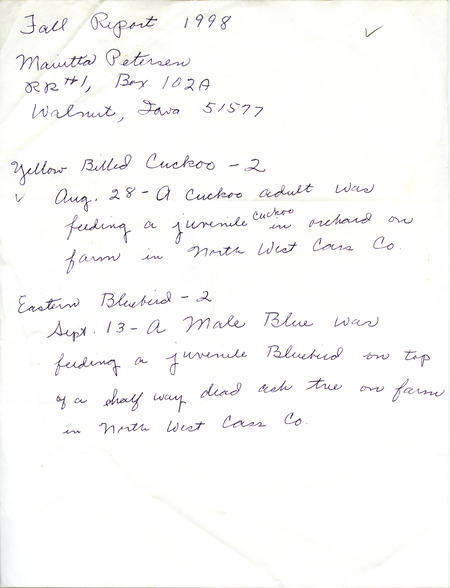 Fall Report 1998
Marietta Petersen
RR #1, Box 102A
Walnut, Iowa 51577
Yellow Billed Cuckoo - 2
✓ Aug. 28 - A cuckoo adult was
feeding a juvenile cuckoo in orchard on
farm in North West Cass Co.
Eastern Bluebird - 2
Sept. 13 - A Male Blue was
feeding a juvenile Bluebird on top
of a half way dead ash tree on farm
in North West Cass Co.